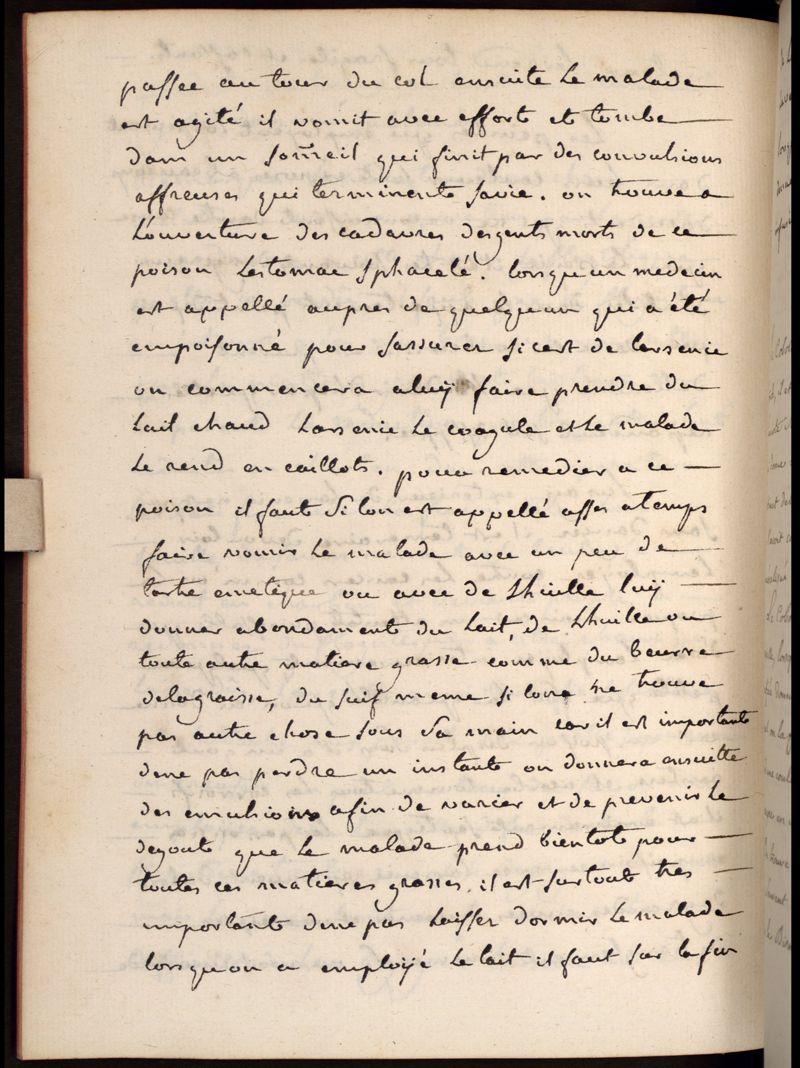 passee au tour du col ensuite le malade
est agité il vomit avec effort et tombe
dans un someil qui finit par des convulsions
affreuses qui terminente savie. on trouve a
Louverture des cadavres desgents morts de ce
poison Lestomac sphacelé. lorsquun medecin
est appellé aupres de quelquun qui a été
empoisonné pour sassurer sicest de larsenic
on commencera aluÿ faire prendre du
Lait chaud Larsenic le coagule et le malade
le rend en caillots. pour remedier a ce
poison il faut si lon est appellé asses atemps
faire vomir le malade avec un peu de
tartre emetique ou avec de Lhuille luÿ
donner abondament du Lait, de Lhuille ou
toute autre matiere grasse comme du beurre
delagraisse, du suif meme si lon ne trouve
pas autre chose sous sa main car il est important
dene pas perdre un instant on donnera ensuitte
des emulsions afin de varier et de prevenir le
degout que le malade prend bientot pour
toutes ces matieres grasses. il est surtout tres
important dene pas laisser dormir le malade
lorsquon a emploÿé le lait il faut sur la fin